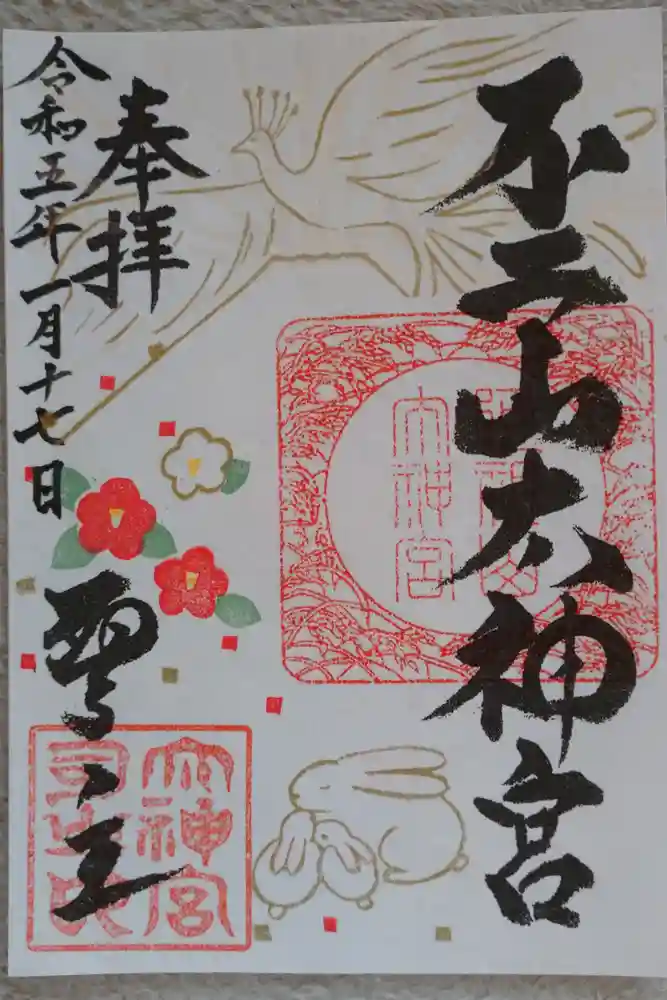 不二山太神宮
大神宮
奉拝
令和五年一月十七日
大神宮